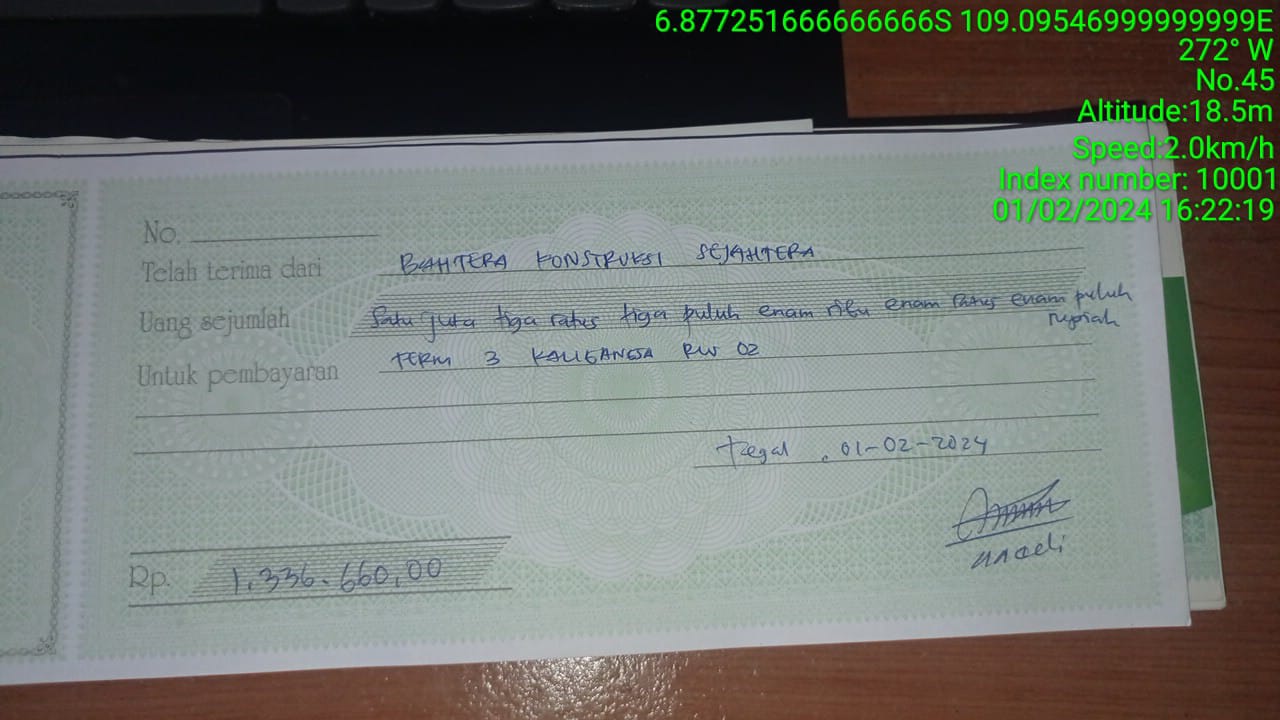 6.877251666666666S 109.09546999999999E
272° W
No.45
Altitude:18.5m
Speed:2.0km/h
Index number: 10001
01/02/2024 16:22:19
No.
Telah terima dari BAHTERA KONSTRUKSI SEJAHTERA
Uang sejumlah Satu juta tiga ratus tiga puluh enam ribu enam ratus enam puluh
rupiah
Untuk pembayaran TERM 3 KALIGANGSA RW 02
Tegal, 01-02-2024
Rp. 1.336.660,00